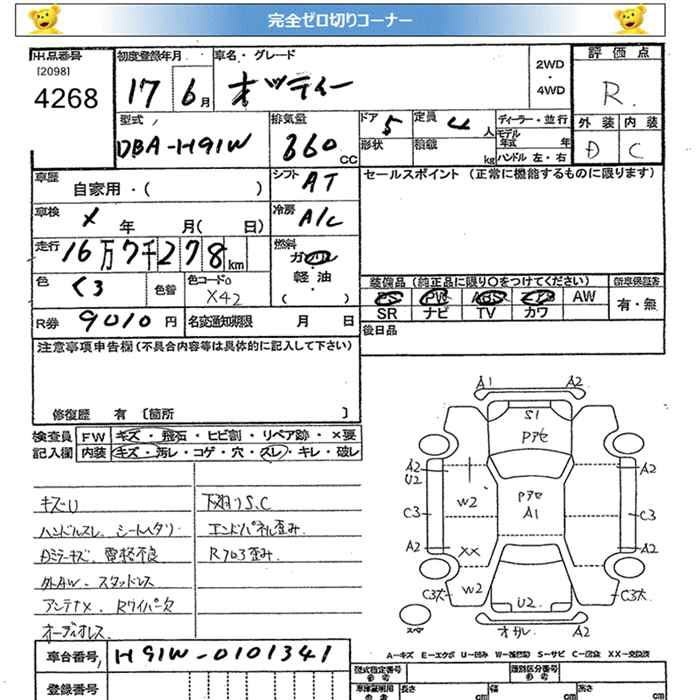 完全ゼロ切りコーナー
出品番号
[2098]
4268
初度登録年月
17 6月
車名・グレード
オッティー
2WD
・
4WD
評価点
R
型式
DBA-H91W
排気量
660 CC
ドア 5
定員 4 人
形状
積載 kg
ディーラー・並行
モデル
年式 年
ハンドル 左・右
外装 内装
D C
車歴
自家用・( )
シフト AT
セールスポイント (正常に機能するものに限ります)
車検 X 年 月( 日)
冷房 A/C
走行 16万7千278km
燃料
ガソリン
軽油
( )
色 クロ
色替
色コードo
X42
装備品 (純正品に限り○をつけてください)
新車保証書
PS PW ABS エアB AW
有・無
SR ナビ TV カワ
R券 9010円
名変通知期限 月 日
後日品
注意事項申告欄(不具合内容等は具体的に記入して下さい)
修復歴 有〔箇所 〕
検査員 FW キズ・飛石・ヒビ割・リペア跡・×要
記入欄 内装 キズ・汚レ・コゲ・穴・スレ・キレ・破レ
キズU
ハンドルスレ シートヘタリ
Aミラーキズ、電格不良
外AW、スタッドレス
アンテナX、Rワイパー欠
オーディオレス
下廻りS.C
エンドパネル歪み
Rフロア歪み
A1 A2
S1
Pアセ
A2
U2
A2
W2
Pアセ
A1
C3
C3
A2
XX
A2
C3大
W2
C3大
U2
スペア
オサレ
A2
A-キズ E-エクボ U-凹み W-補修跡 S-サビ C-腐食 XX-交換済
車台番号 H91W-0101341
登録番号
型式指定番号
参考
類別区分番号
参考
車庫証明用
参考
長さ cm
幅 cm
高さ cm